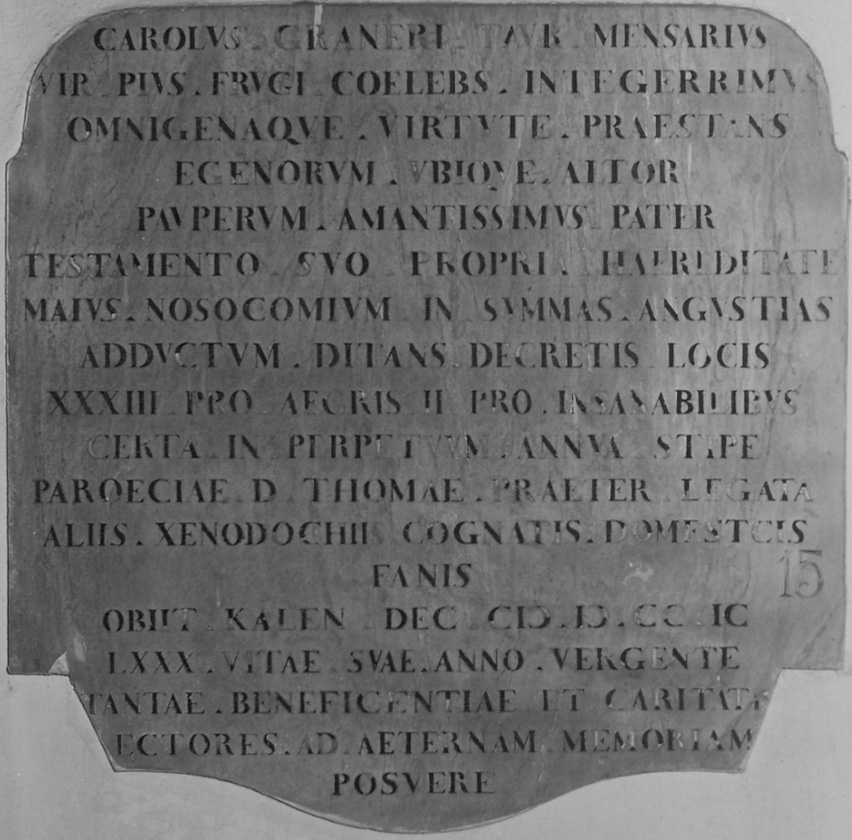 CAROLVS . GRANERI . TAVR . MENSARIVS
VIR . PIVS . FRVGI . COELEBS . INTEGERRIMVS
OMNIGENAQVE . VIRTVTE . PRAESTANS
EGENORVM . VBIQVE . ALTOR
PAVPERVM . AMANTISSIMVS . PATER
TESTAMENTO . SVO . PROPRI . HAEREDITATE
MAIVS . NOSOCOMIVM . IN . SVMMAS . ANGVSTIAS
ADDVCTVM . DITANS . DECRETIS . LOCIS
XXXIII . PRO . AEGRIS . II . PRO . INSANABILIBVS
CERTA . IN . PERPETVVM . ANNVA . STIPE
PAROECIAE . D . THOMAE . PRAETER . LEGATA
ALIIS . XENODOCHIIS . COGNATIS . DOMESTCIS
FANIS
15
OBIIT . KALEN . DEC . CIƆ.IƆ.CC . IC
LXXX . VITAE . SVAE . ANNO . VERGENTE
TANTAE . BENEFICENTIAE . ET . CARITATE
ECTORES . AD . AETERNAM . MEMORIAM
POSVERE